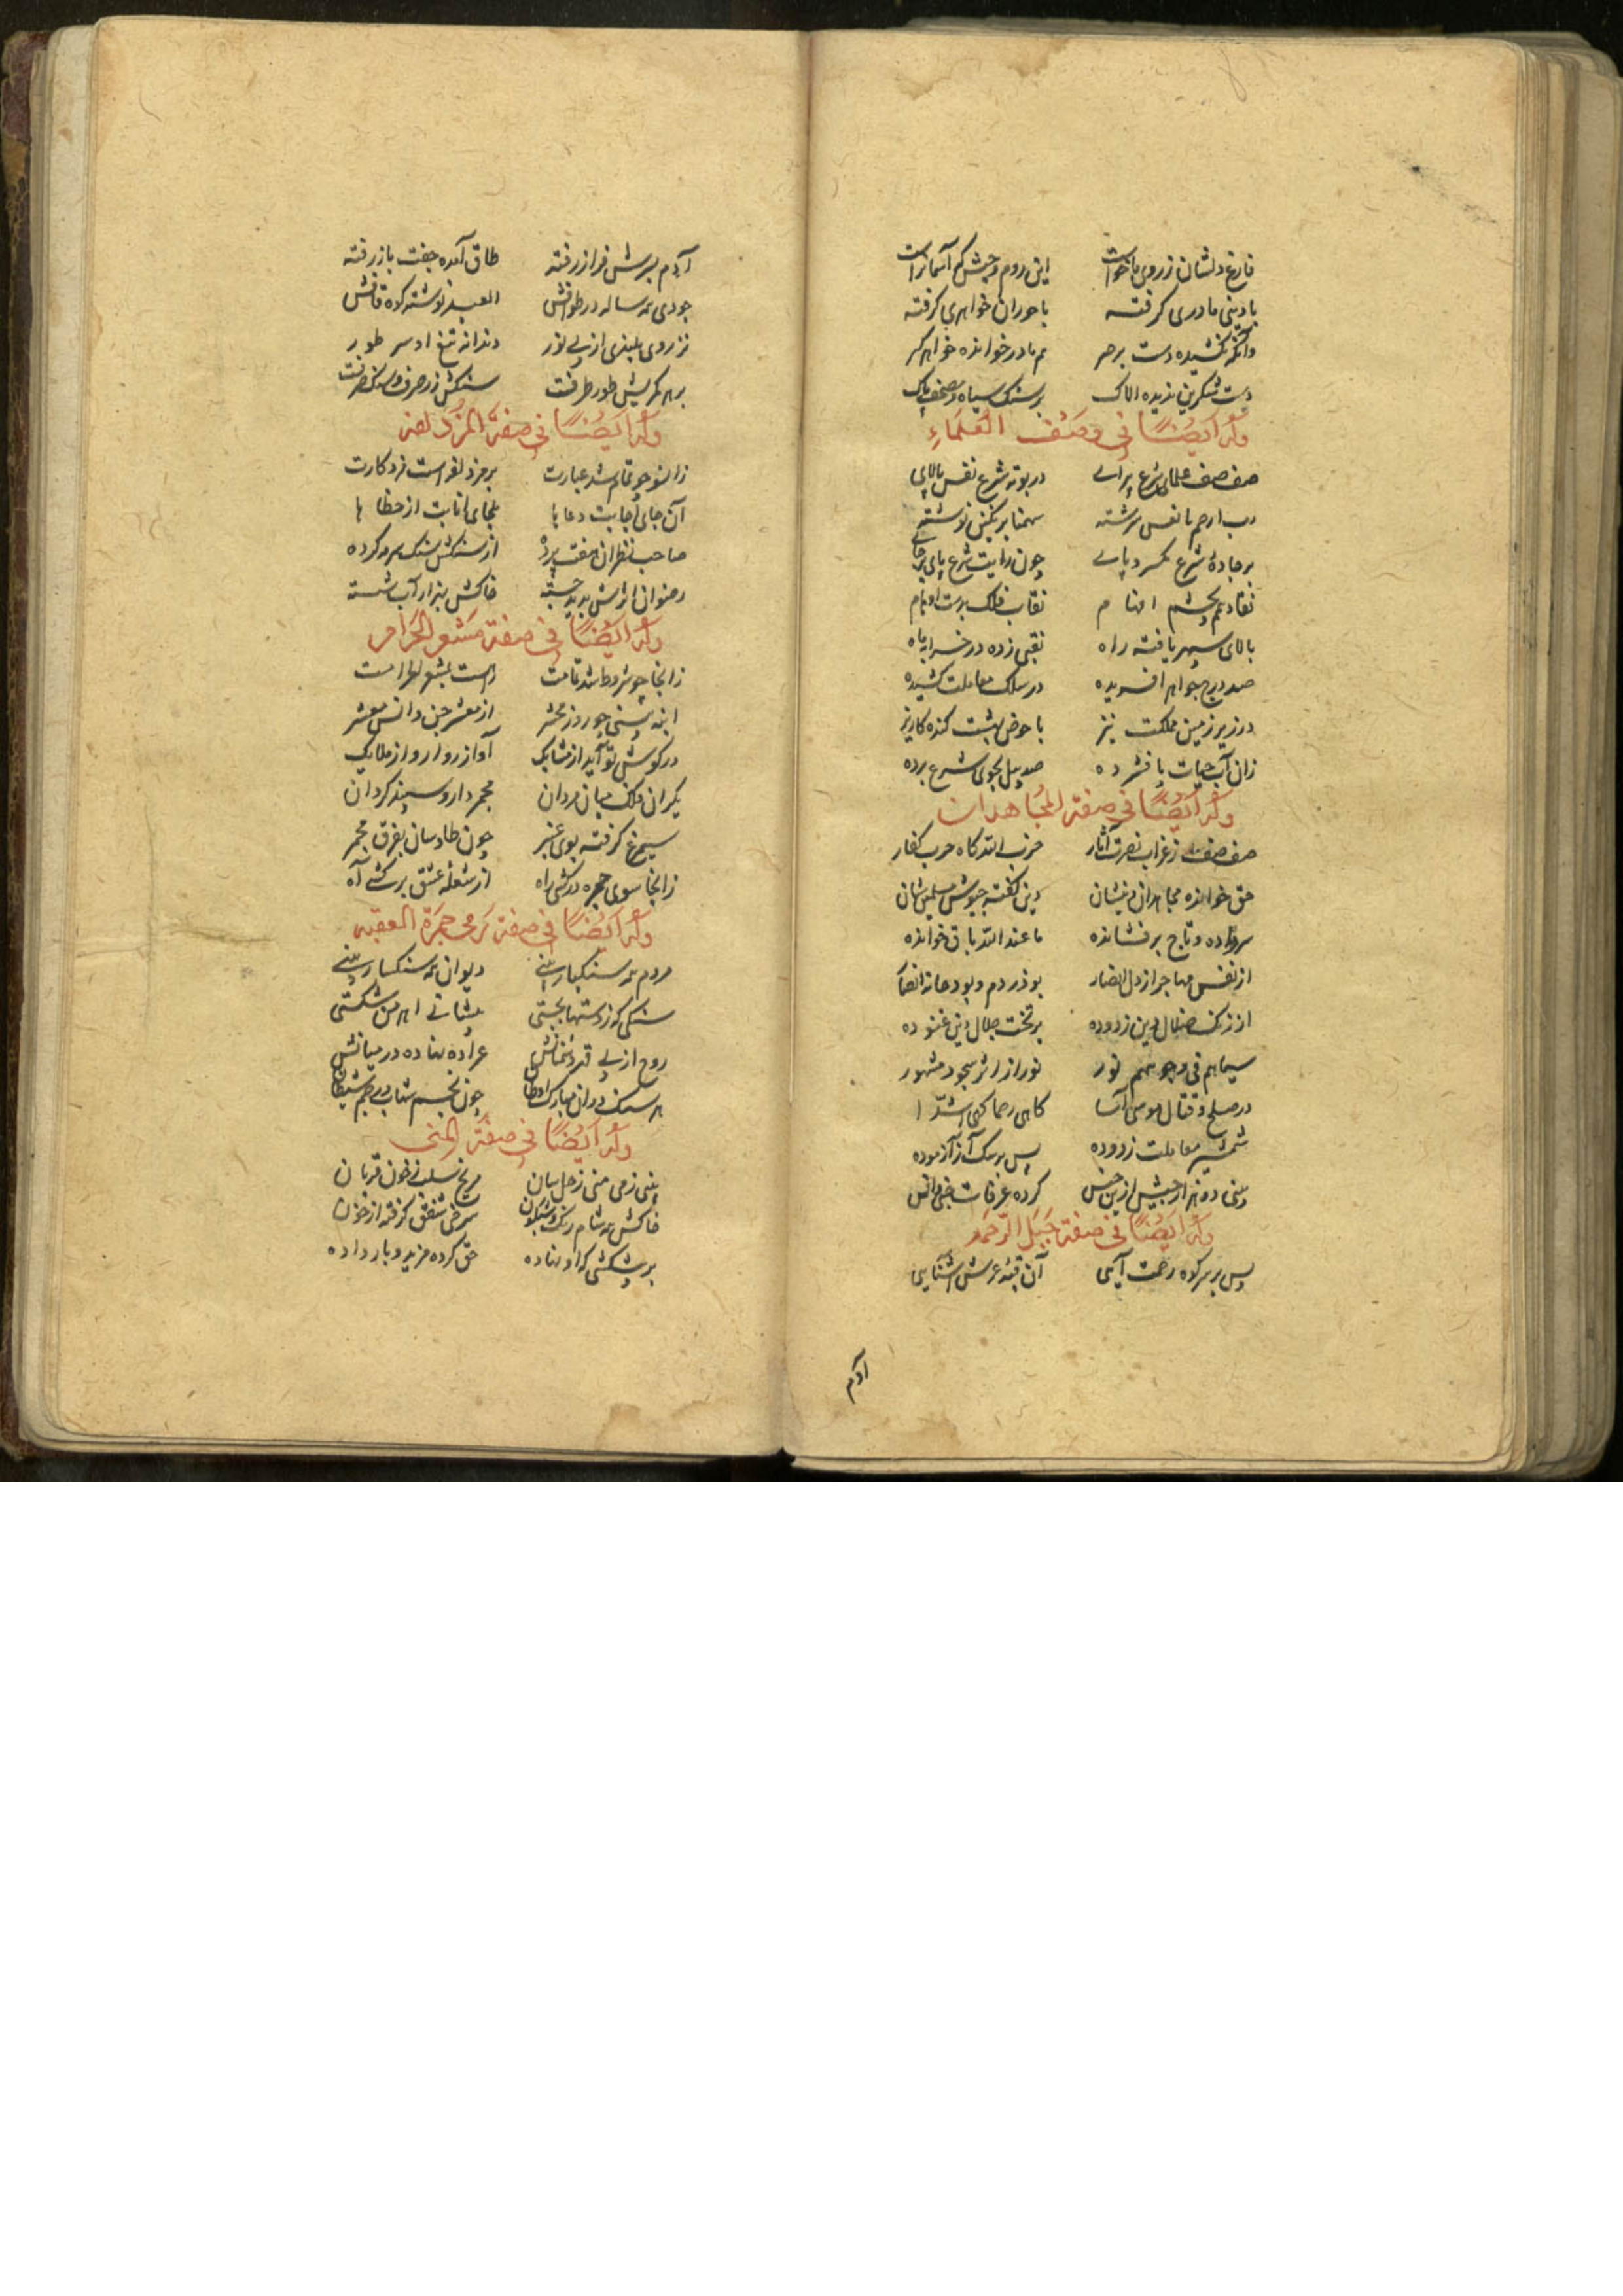 فارغ دلشان ز روی ماخواست این روم و حبش کم آسمانراست
با دینی مادری کرفته با حوران خواهری کرفته
وانکه نکشیده دست بر حر هم مادر خوانده خواهر کر
دست شکرین ندیده الاک بر سنک سیاه و مصحف پاک
وله ایضًا فی وصف العلماءِ
صف صف علمای شرع پیرای در بوته شرع نفس پالای
رب ارحم با نفس سرشته سهمنا بر نکین نوشته
بر جادهٔ شرع کمر و پای چون رایت شرع پای بر جای
نقاد بچشم افهام نقاب فلک بدست اوهام
بالای سپهر یافته راه نقبی زده در خسرایه
صد درج جواهر آفریده در سلک معاملت کشیده
در زیر زمین مملکت نیز با حوض بهشت کنده کاریز
زان آب حیات پا فشرده صد پیل بجوی شرع برده
وله ایضًا فی صفة المجاهدان
صف صف ز غزاة نصرت آثار حزب الله کاه حرب کفار
حق خوانده مجاهدان دینشان دین کفته جیوش مسلمین شان
سر داده و تاج بر فشانده ما عند الله باق خوانده
از نفس مهاجر از دل انصار بوذر دم و بودجانه انصار
از زنک ضلال دین زدوده بر تخت جلال دین غنوده
سیماهم فی وجوههم نور نور از اثر سجود مشهور
در صلح و قتال موسی آسا کاهی رحما کهی اشدّا
شمشیر معاملت زدوده پس بر سک آز آزموده
وسی دو هزار جیش ازین جنس کرده عرفات جنی و انس
وله ایضًا فی صفة جبل الرحمه
پس بر سر کوه رحمت آیی آن قبه عرش آشنایی
آدم
آدم بسرش فراز رفته طاق آمده جفت باز رفته
جودی همه ساله در طوافش العبد نوشته کوه قافش
نز روی بلندی از پی نور دندانه تیغ او سر طور
بر هر کمریش طور طرفت سنکش ز صرف
وله ایضًا فی صفة المزدلفه
زانسو چو تمام شد عبارت بر مزدلفه است مزد کارت
آن جای اجابت دعاها ملجای انابت از خطاها
صاحب نظران هفت پرده از سنکش سنک سرمه کرده
رضوان اثرش بدیده جسته خاکش بهزار آب شسته
وله ایضًا فی صفة مشعر الحرام
زانجا چو شروط شد تمامت راهست بمشعر الحرامت
انبه بینی چو روز محشر از معشر جن و انس معشر
در کوش تو آید از مشابک آواز روارو از ملایک
یکران ملک میان مردان مجمر دار و سپند کردان
سیمرغ کرفته بوی عنبر چون طاوسان بفرق مجمر
زانجا سوی جمره در کشی راه از شعله عشق بر کشی آه
وله ایضًا فی صفة رمی جمرة العقبه
مردم همه سنکبار بینی دیوان همه سنکسار بینی
سنکی که ز دستها بجستی پیشانی اهرمن شکستی
روح از پی قهر دشمنانش عراده نهاده در میانش
هر سنک دران مبارک اوطان چون نجم شهاب و رجم شیطان
وله ایضًا فی صفة المنی
بینی زمی منی زحل سان مریخ سلب ز خون قربان
خاکش همه شام رنک و شبکون سرخی شفق کرفته از خون
هر پشکشی که او نهاده حق کرده مزید و باز داده